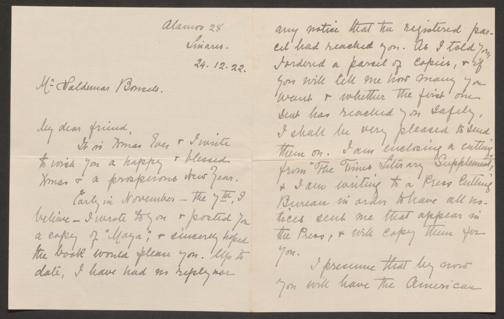 Alamos 28
Linares.
24.12.22.
Mr Valdemar Bonsels.
My dear friend,
It is Xmas Eve & I write
to wish you a happy & blessed
Xmas & a prosperous New Year.
Early in November – the 7th, I
believe – I wrote to you & posted you
a copy of "Maya", & sincerely hoped
the book would please you. Up to
date, I have had no reply nor
any notice that the registered par-
cel had reached you. As I told you
I ordered a parcel of copies, & if
you will tell me how many you
want & whether the first one
sent has reached you safely,
I shall be very pleased to send
them on. I am enclosing a cutting
from "The Times Literary Supplement",
& I am writing to a Press Cutting
Bureau in order to have all no-
tices sent me that appear in
the Press, & will copy them for
you.
I presume that by now
you will have the American